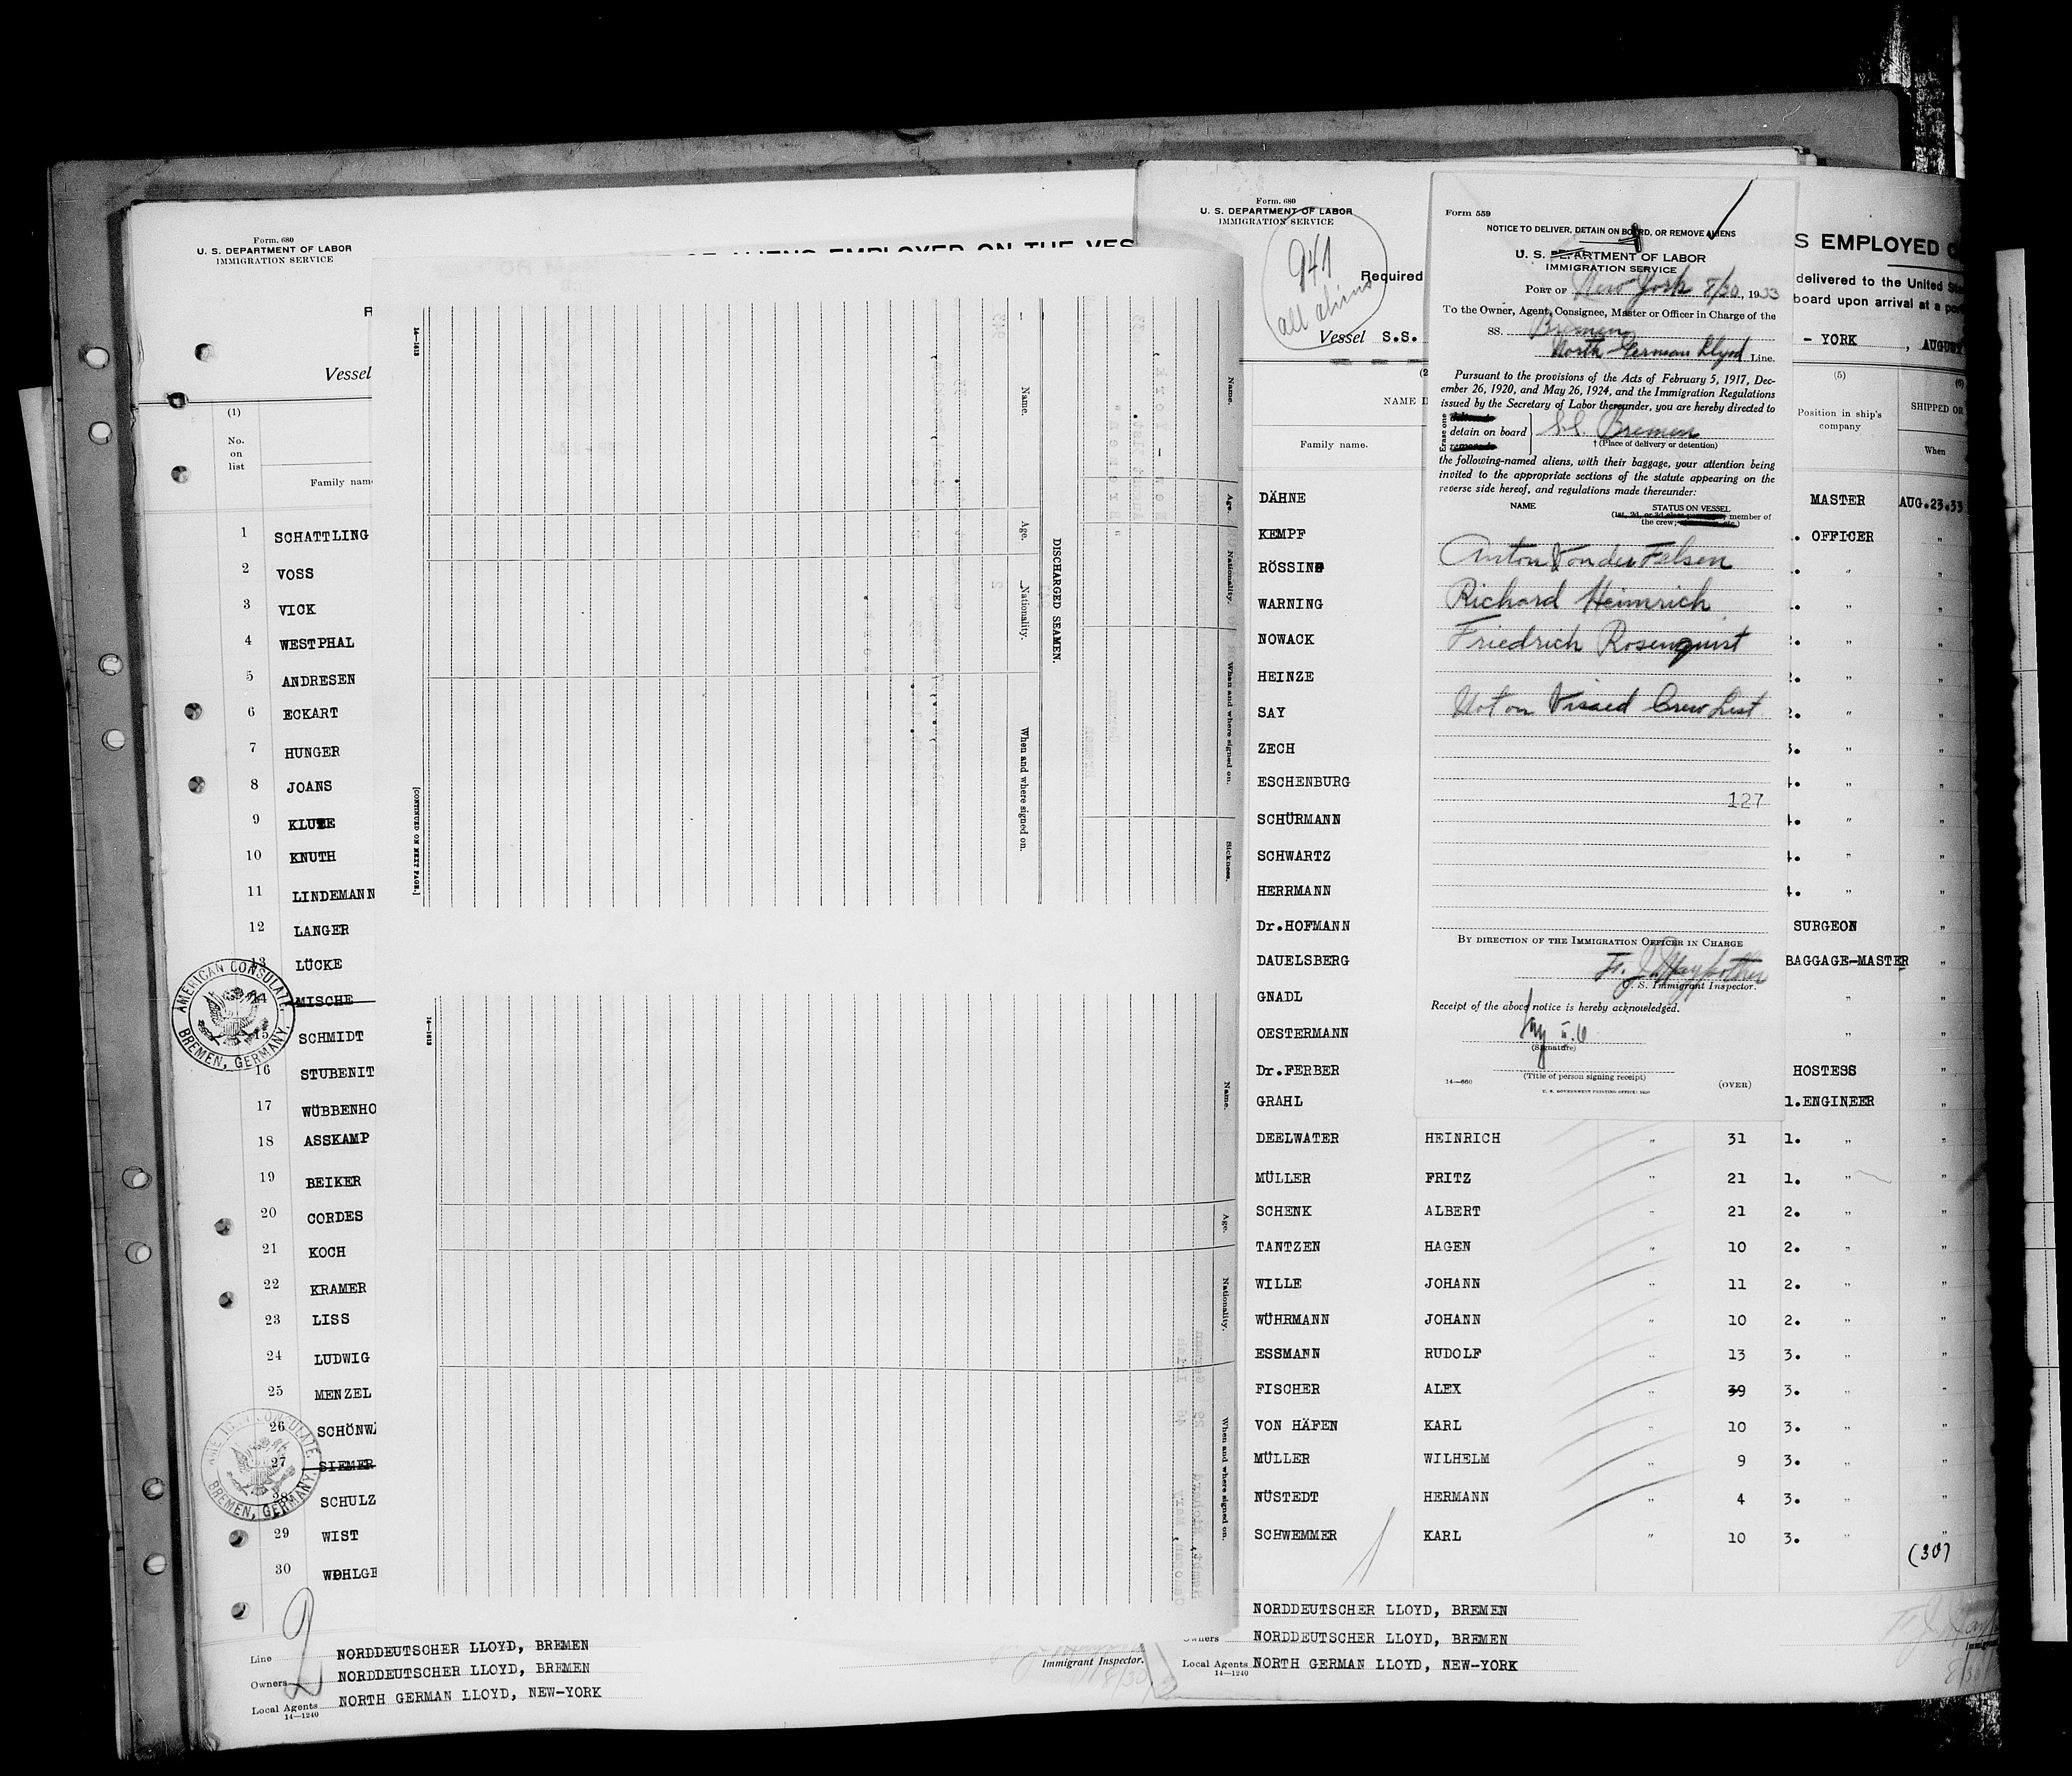 Form. 680
U. S. DEPARTMENT OF LABOR
IMMIGRATION SERVICE
Vessel
(1)
No.
on
list
Family name
1 SCHATTLING
2 VOSS
3 VICK
4 WESTPHAL
5 ANDRESEN
6 ECKART
7 HUNGER
8 JOANS
9 KLUTE
10 KNUTH
11 LINDEMANN
12 LANGER
13 LÜCKE
14 MISCHE
15 SCHMIDT
16 STUBENIT
17 WÜBBENHO
18 ASSKAMP
19 BEIKER
20 CORDES
21 KOCH
22 KRAMER
23 LISS
24 LUDWIG
25 MENZEL
26 SCHÖNW
27 SIEMER
28 SCHULZ
29 WIST
30 WOHLGE
AMERICAN CONSULATE,
BREMEN, GERMANY.
AMERICAN CONSULATE,
BREMEN, GERMANY.
2
Line NORDDEUTSCHER LLOYD, BREMEN
Owners NORDDEUTSCHER LLOYD, BREMEN
Local Agents NORTH GERMAN LLOYD, NEW-YORK
14—1240
Immigrant Inspector.
8/30
OF ALIENS EMPLOYED ON THE VES
14—1613
Name. Age. Nationality. When and where signed on. Sickness.
DISCHARGED SEAMEN.
Name. Age. Nationality. When and where signed on.
[CONTINUED ON NEXT PAGE.]
14—1613
Name. Age. Nationality. When and where signed on.
Form. 680
U. S. DEPARTMENT OF LABOR
IMMIGRATION SERVICE
941
all aliens
Required
Vessel S.S.
S EMPLOYED O
delivered to the United Sta
board upon arrival at a po
- YORK , AUGUST
(2
NAME I
Family name.
(5)
Position in ship's
company
(6)
SHIPPED OR
When
DÄHNE MASTER AUG.23.33
KEMPF . OFFICER "
RÖSSING . " "
WARNING . " "
NOWACK 2. " "
HEINZE 2. " "
SAY 2. " "
ZECH 3. " "
ESCHENBURG 4. " "
SCHÜRMANN 4. " "
SCHWARTZ 4. " "
HERRMANN 4. " "
Dr.HOFMANN SURGEON "
DAUELSBERG BAGGAGE-MASTER "
GNADL " "
OESTERMANN " "
Dr.FERBER HOSTESS "
GRAHL 1.ENGINEER "
DEELWATER HEINRICH " 31 1. " "
MÜLLER FRITZ " 21 1. " "
SCHENK ALBERT " 21 2. " "
TANTZEN HAGEN " 10 2. " "
WILLE JOHANN " 11 2. " "
WÜHRMANN JOHANN " 10 2. " "
ESSMANN RUDOLF " 13 3. " "
FISCHER ALEX " 39 3. " "
VON HÄFEN KARL " 10 3. " "
MÜLLER WILHELM " 9 3. " "
NÜSTEDT HERMANN " 4 3. " "
SCHWEMMER KARL " 10 3. " "
(30)
NORDDEUTSCHER LLOYD, BREMEN
Owners NORDDEUTSCHER LLOYD, BREMEN
Local Agents NORTH GERMAN LLOYD, NEW-YORK
14—1240
Form 559
NOTICE TO DELIVER, DETAIN ON BOARD, OR REMOVE ALIENS
U. S. DEPARTMENT OF LABOR
IMMIGRATION SERVICE
PORT OF New York 8/30, 1933
To the Owner, Agent, Consignee, Master or Officer in Charge of the
SS. Bremen
North German Lloyd Line.
Pursuant to the provisions of the Acts of February 5, 1917, Dec-
ember 26, 1920, and May 26, 1924, and the Immigration Regulations
issued by the Secretary of Labor thereunder, you are hereby directed to
Erase one
detain on board S.S. Bremen
† (Place of delivery or detention)
the following-named aliens, with their baggage, your attention being
invited to the appropriate sections of the statute appearing on the
reverse side hereof, and regulations made thereunder:
NAME STATUS ON VESSEL
member of
the crew;
Anton Von der Felsen
Richard Heimrich
Friedrich Rosenquist
Not on Visaed Crew List
127
BY DIRECTION OF THE IMMIGRATION OFFICER IN CHARGE
U. S. Immigrant Inspector.
Receipt of the above notice is hereby acknowledged.
(Signature)
(Title of person signing receipt)
14—660 (OVER)
U. S. GOVERNMENT PRINTING OFFICE: 1930